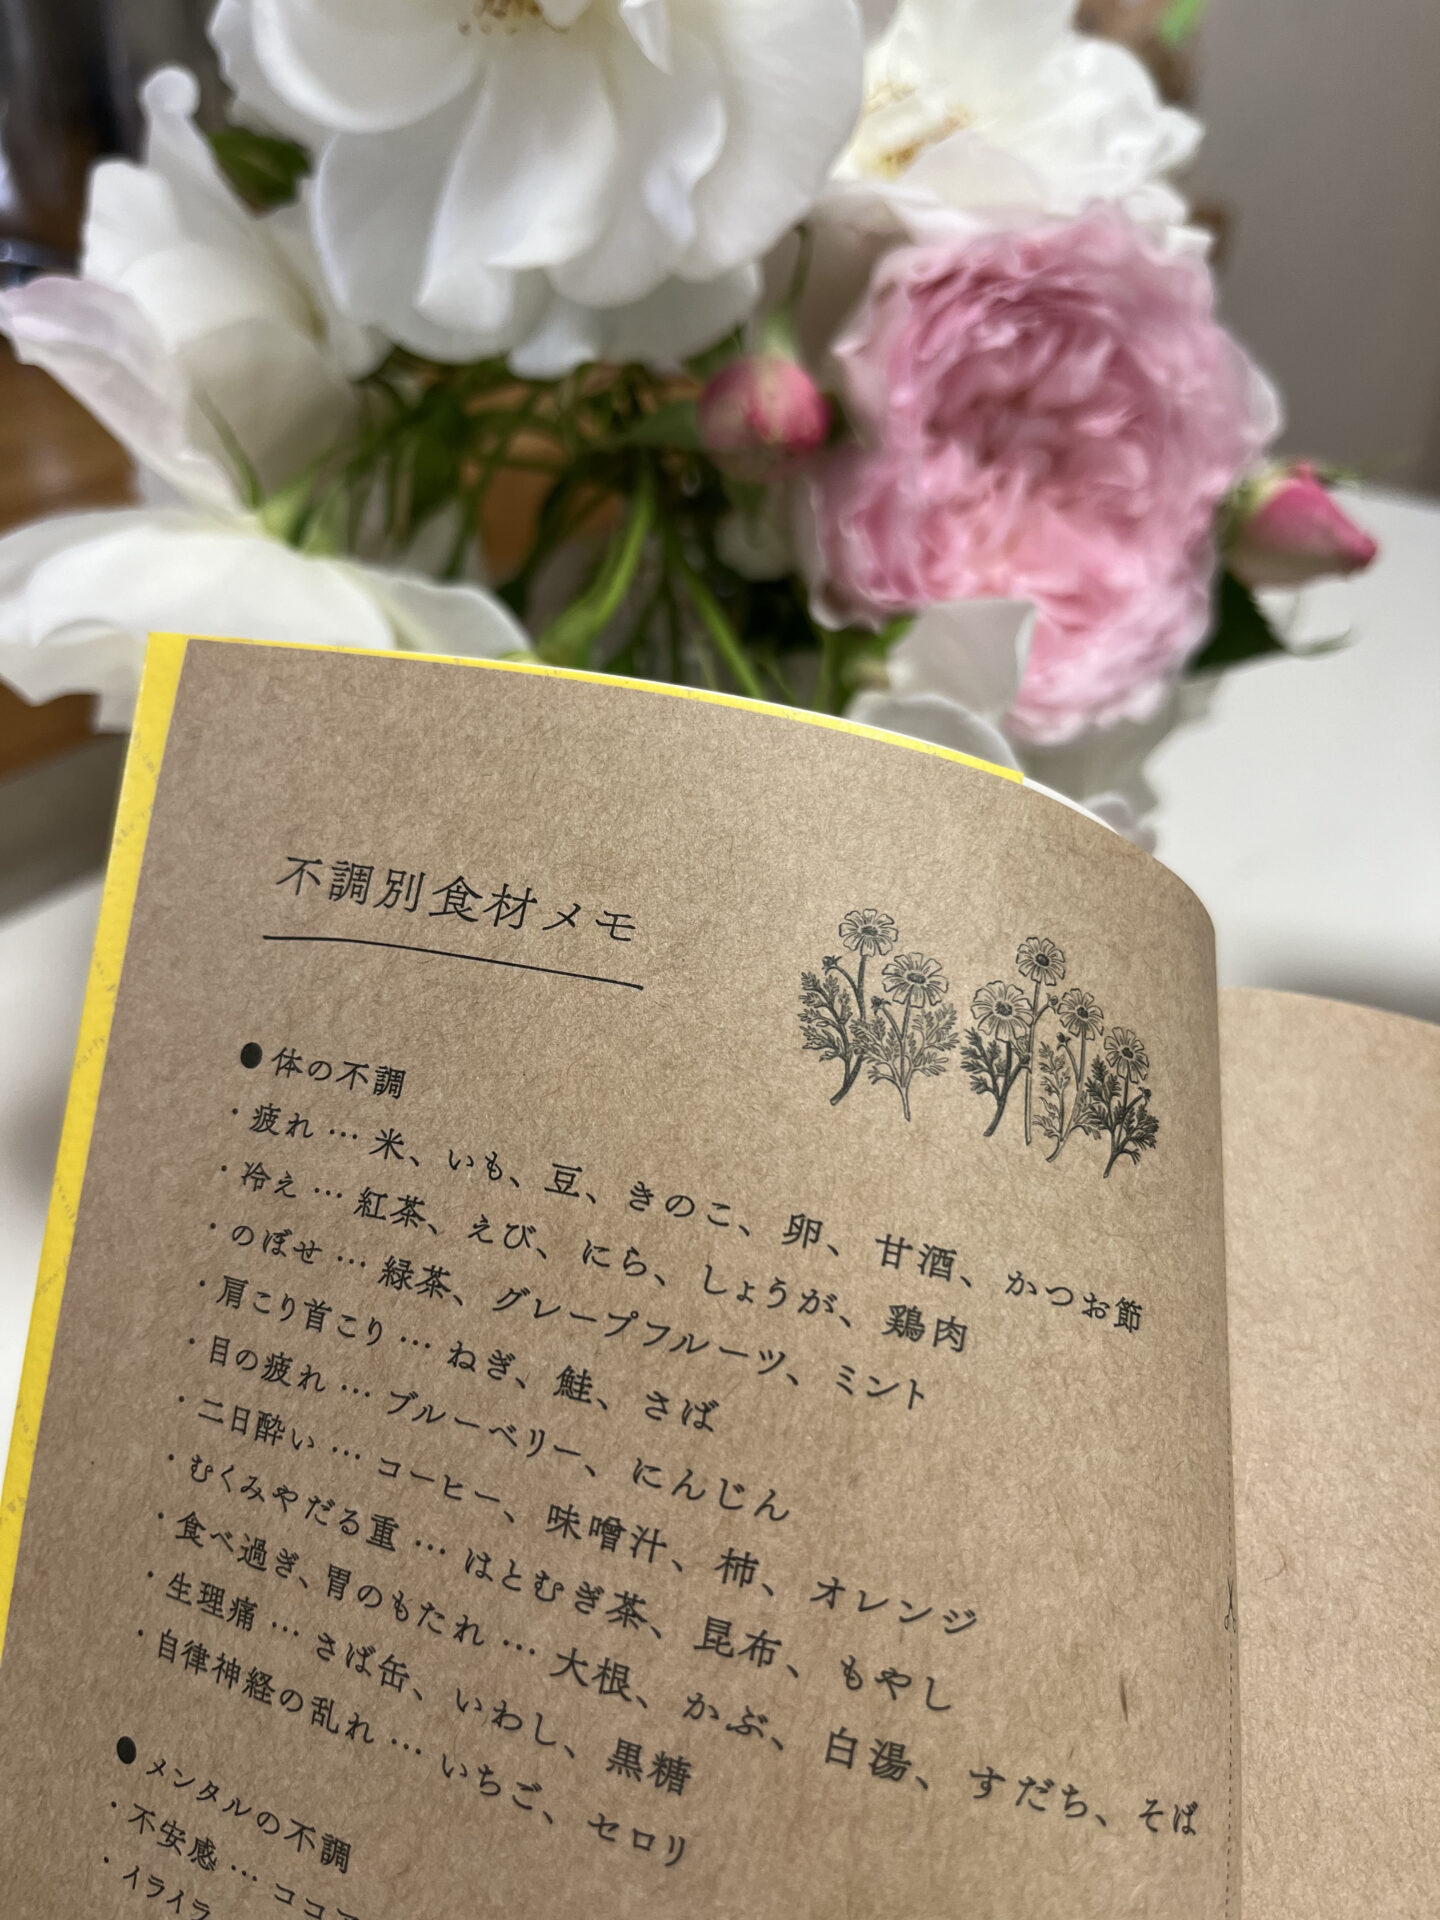 不調別食材メモ
●体の不調
・疲れ…米、いも、豆、きのこ、卵、甘酒、かつお節
・冷え…紅茶、えび、にら、しょうが、鶏肉
・のぼせ…緑茶、グレープフルーツ、ミント
・肩こり首こり…ねぎ、鮭、さば
・目の疲れ…ブルーベリー、にんじん
・二日酔い…コーヒー、味噌汁、柿、オレンジ
・むくみやだる重…はとむぎ茶、昆布、もやし
・食べ過ぎ、胃のもたれ…大根、かぶ、白湯、すだち、そば
・生理痛…さば缶、いわし、黒糖
・自律神経の乱れ…いちご、セロリ
●メンタルの不調
・不安感…ココア
・イライラ